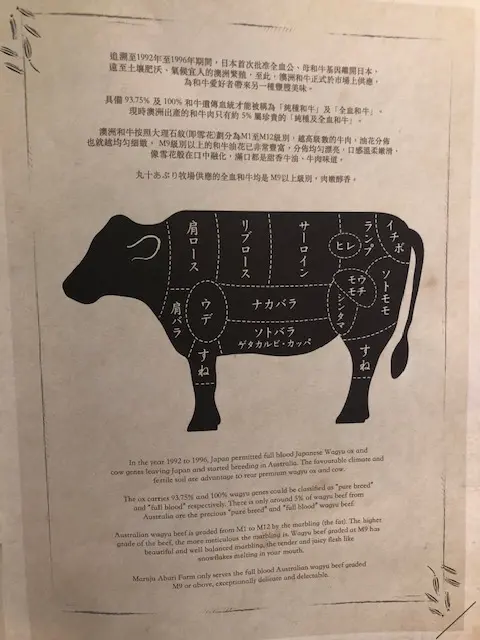 追溯至1992年至1996年期間，日本首次批准全血公、母和牛基因離開日本，
遠至土壤肥沃、氣候宜人的澳洲繁殖，至此，澳洲和牛正式於市場上供應，
為和牛愛好者帶來另一種豐腴美味。
具備 93.75% 及 100% 和牛遺傳血統才能被稱為「純種和牛」及「全血和牛」。
現時澳洲出產的和牛肉只有約 5% 屬珍貴的「純種及全血和牛」。
澳洲和牛按照大理石紋(即雪花)劃分為M1至M12級別，越高級數的牛肉，油花分佈
也就越均勻細緻。 M9級別以上的和牛油花已非常豐富，分佈均勻漂亮，口感溫柔嫩滑，
像雪花般在口中融化，滿口都是甜香牛油、牛肉味道。
丸十あぶり牧場供應的全血和牛均是 M9以上級別，肉嫩醇香。
肩ロース
リブロース
サーロイン
ヒレ
ランプ
イチボ
肩バラ
ウデ
ナカバラ
ソトバラ
ゲタカルビ・カッパ
ウチモモ
シンタマ
ソトモモ
すね
すね
In the year 1992 to 1996, Japan permitted full blood Japanese Wagyu ox and
cow genes leaving Japan and started breeding in Australia. The favourable climate and
fertile soil are advantage to rear premium wagyu ox and cow.
The ox carries 93.75% and 100% wagyu genes could be classified as "pure breed"
and "full blood" respectively. There is only around 5% of wagyu beef from
Australia are the precious "pure breed" and "full blood" wagyu beef.
Australian wagyu beef is graded from M1 to M12 by the marbling (the fat). The higher
grade of the beef, the more meticulous the marbling is. Wagyu beef graded at M9 has
beautiful and well balanced marbling, the tender and juicy flesh like
snowflakes melting in your mouth.
Maruju Aburi Farm only serves the full blood Australian wagyu beef graded
M9 or above, exceptionally delicate and delectable.